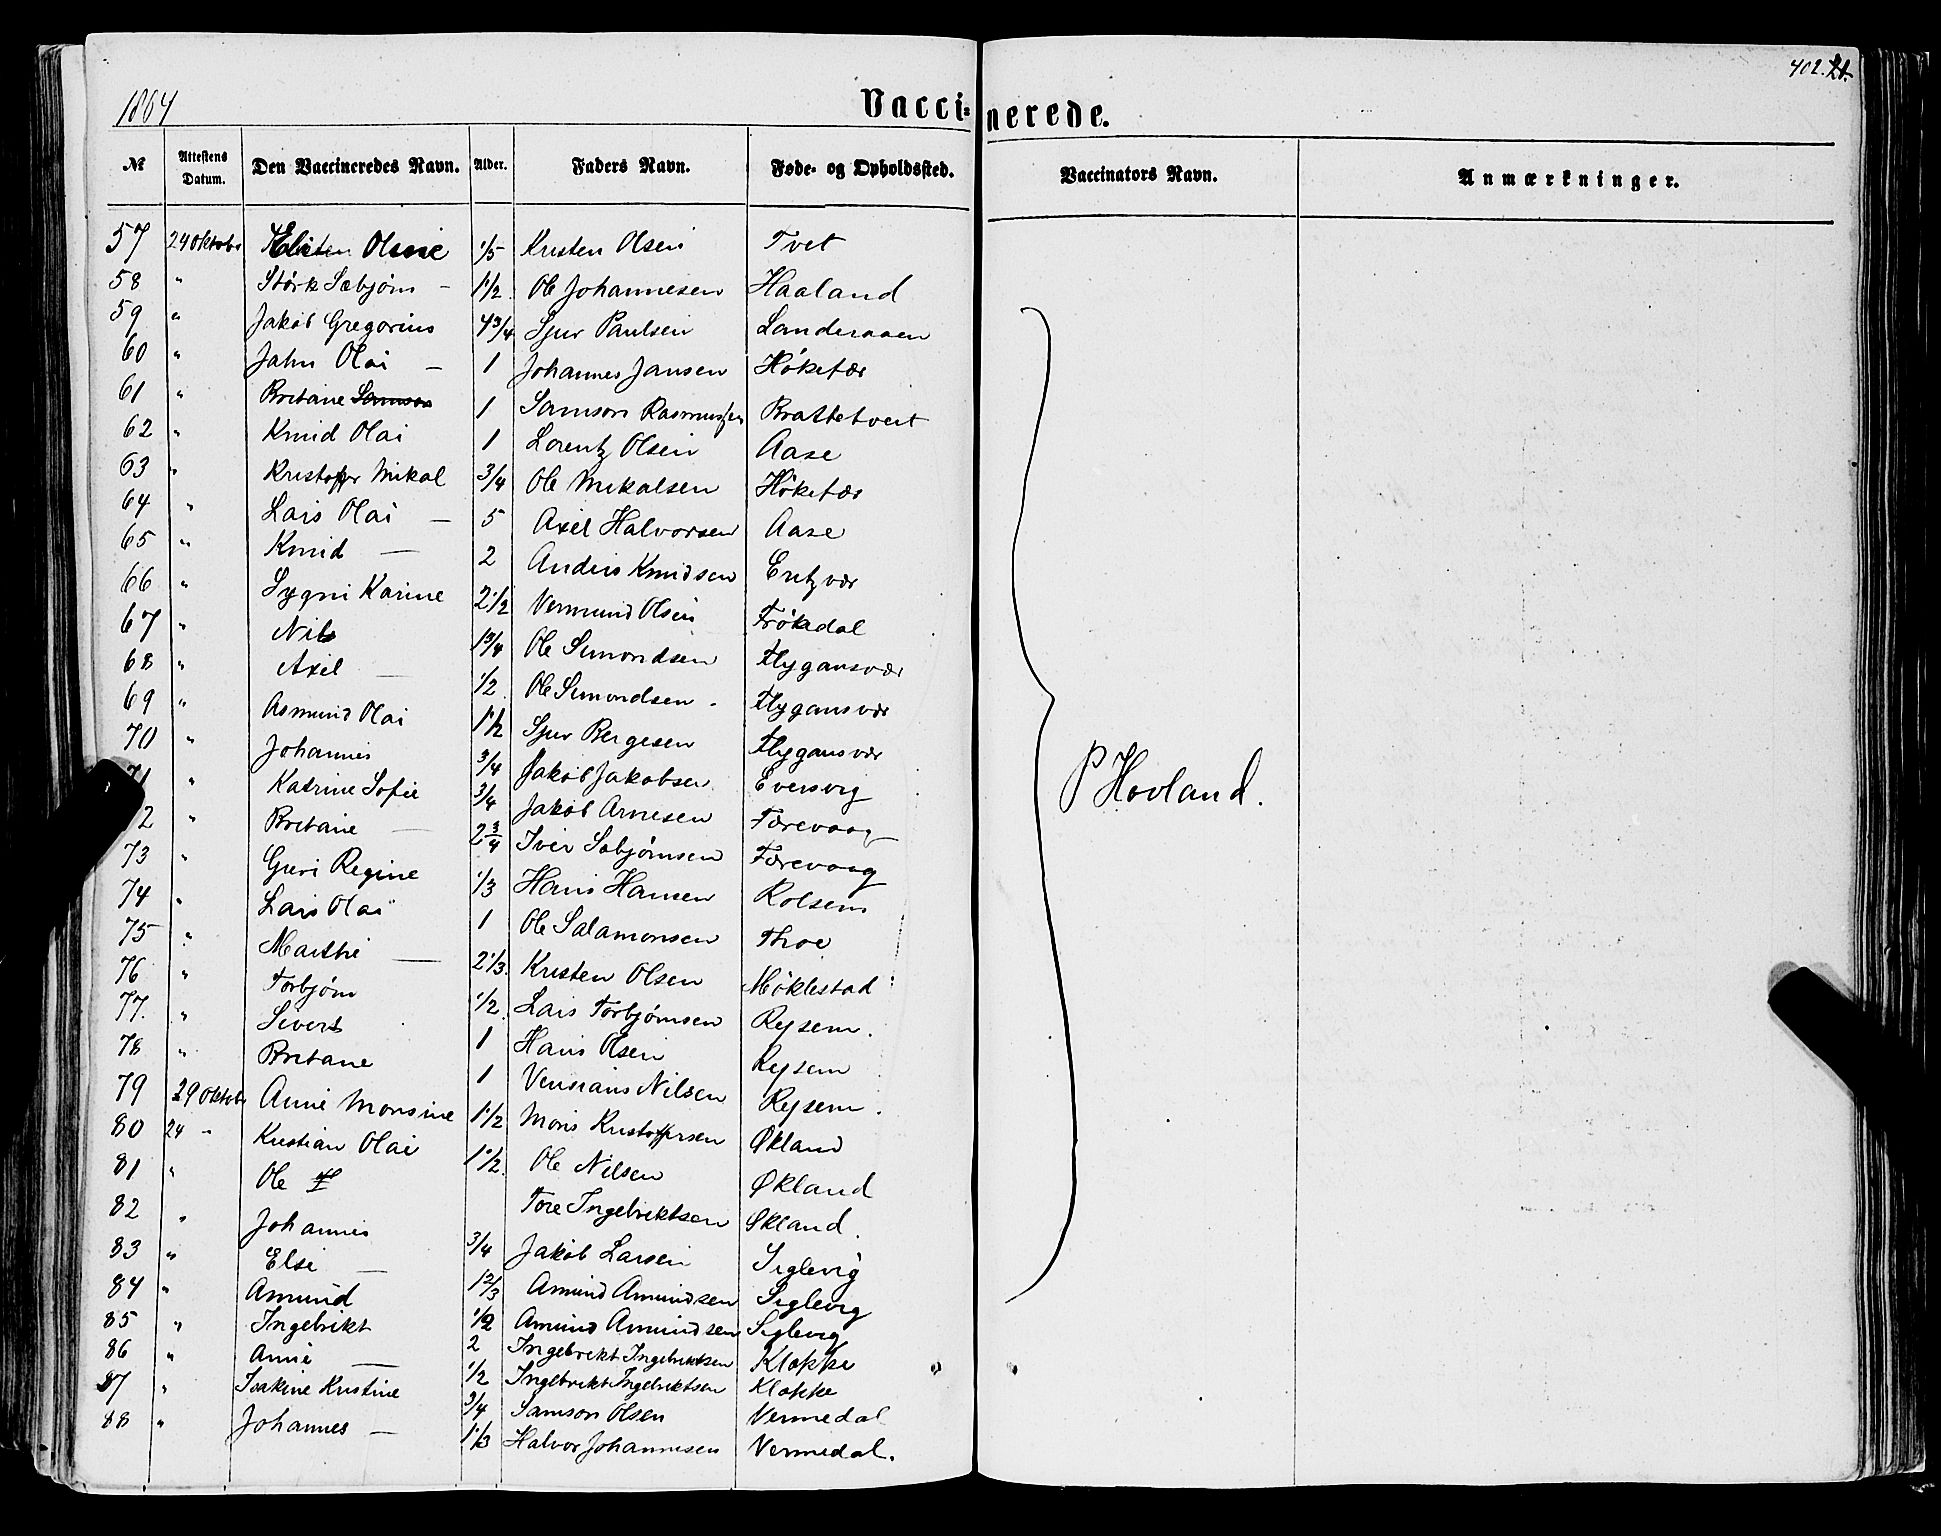 402. 21.
1864
Vaccinerede.
№ Attestens Datum. Den Vaccineredes Navn. Alder. Faders Navn. Føde- og Opholdssted. Vaccinators Navn. Anmærkninger.
57 24 Oktobr Olene 1/5 Kristen Olsen Tvet
58 " Størk Sæbjørn - 1 1/2 Ole Johannesen Haaland
59 " Jakob Gregorius 4 3/4 Sjur Paulsen Landeraaen
60 " Jahn Olai - 1 Johannes Jansen Høkefær
61 " Britane Samson 1 Samson Rasmussen Brattetveit
62 " Knud Olai 1 Lorentz Olsen Aase
63 " Kristoffer Mikal 3/4 Ole Mikalsen Høkefær
64 " Lars Olai - 5 Axel Halvorsen Aase
65 " Knud - 2 Anders Knudsen
66 " Sygni Karine 2 1/2 Vermund Olsen Frøkedal
67 " Nils 1 3/4 Ole Simondsen Flygansvær
68 " Axel - 1/2 Ole Simondsen - Flygansvær
69 " Asmund Olai 1 1/2 Sjur Bergesen Flygansvær
70 " Johannes 3/4 Jakob Jakobsen Eversvig
71 " Katrine Sofie 3/4 Jakob Arnesen Færevaag
72 " Britane - 2 3/4 Iver Sebjørnsen Færevaag
73 " Guri Regine 1/3 Hans Hansen Rolsem
74 " Lars Olai 1 Ole Salamonsen Thoe
75 " Marthe - 2 1/3. Kristen Olsen Møklestad
76 " Torbjørn 1/2. Lars Torbjørnsen Røysem.
77. " Sivert 1 Hans Olsen Røysem
78 " Britane 1 Nilsen Røysem.
79 29 Oktobr Anne Monsine 1 1/2 Mons Kristoffersen Økland
80 24 " Kristian Olai 1 1/2. Ole Nilsen Økland
81 " Ole Tore Ingebriktsen Økland.
82 " Johannes 3/4 Jakob Larsen Siglevig
83 " Else - 1 2/3 Amund Amundsen Siglevig
84 " Amund 1/2 Amund Amundsen Siglevig
85 " Ingebrikt 2 Ingebrikt Ingebriktsen Klokke
86 " Anne - 1/2 Ingebrikt Ingebriktsen Klokke
87 " Isakine Kristine 3/4 Samson Olsen Vermedal
88 " Johannes - 1 1/3 Halvor Johannesen Vermedal.
P Hovland.